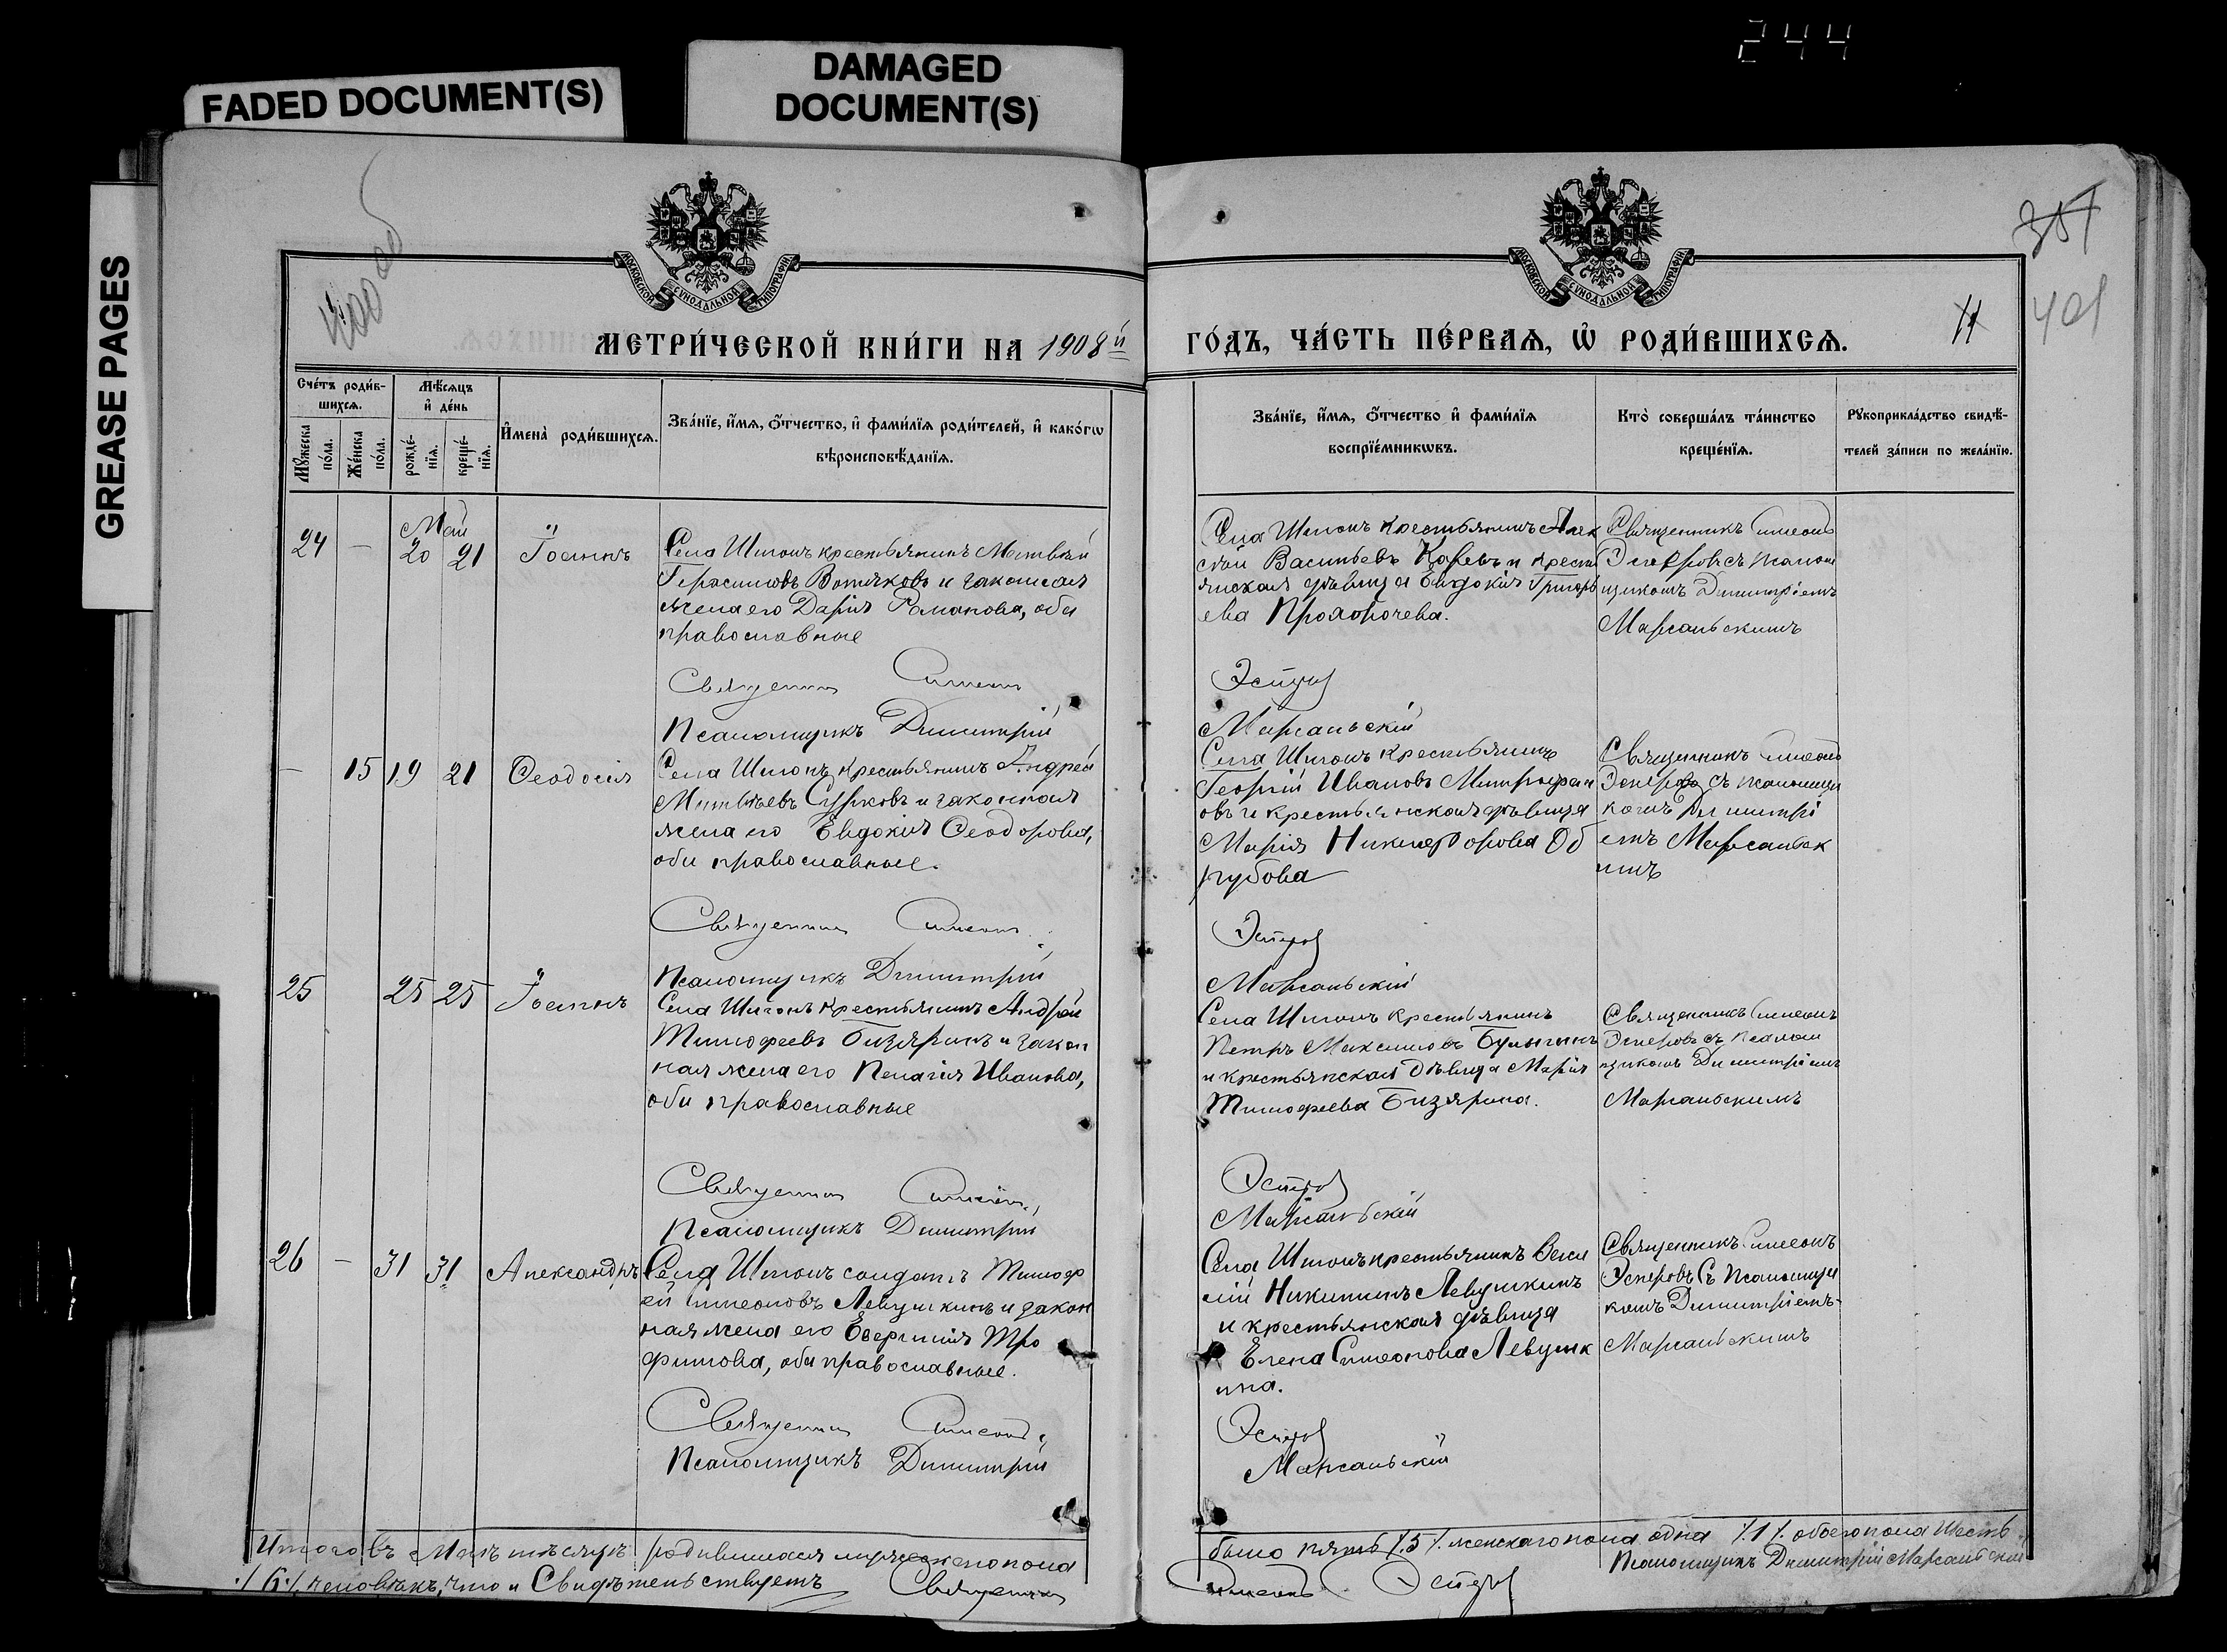 244
FADED DOCUMENT(S)
DAMAGED
DOCUMENT(S)
GREASE PAGES
400 об
МОСКОВСКОЙ СѴНОДАЛЬНОЙ ТИПОГРАФІИ
МОСКОВСКОЙ СѴНОДАЛЬНОЙ ТИПОГРАФІИ
401
11
МЕТРИ́ЧЕСКОЙ КНИ́ГИ НА 1908й
ГО́ДЪ, ЧА́СТЬ ПЕ́РВАѦ, Ѡ҆ РОДИ́ВШИХСѦ.
Сче́тъ роди́в-
шихсѧ.
Мꙋ́жеска по́ла.
Же́нска по́ла.
Мѣ́сѧцъ
и҆ де́нь
рожде́-нїѧ.
креще́-нїѧ.
И҆мена̀ роди́вшихсѧ.
Зва́нїе, и҆́мѧ, ѻ҆́тчество, и҆ фами́лїѧ роди́телей, и҆ како́гѡ
вѣроисповѣ́данїѧ.
Зва́нїе, и҆́мѧ, ѻ҆́тчество и҆ фами́лїѧ
воспрїе́мникѡвъ.
Кто̀ соверша́лъ та́инство
креще́нїѧ.
Рꙋкоприкла́дство свидѣ́-
телей за́писи по жела́нїю.
Май
24 — 20 21 Іоаннъ
Села Шигонъ крестьянинъ Матвѣй
Герасимовъ Вотяковъ и законная
жена его Дарія Романова, оба
православные
Священник Симеонъ
Псаломщикъ Димитрій
Села Шигонъ крестьянинъ Алек
сѣй Васильевъ Каревъ и кресть
янская дѣвица Евдокія Григорь
ева Прохорочева.
Эсперов
Марсальскій
Священникъ Симеонъ
Эсперовъ съ псалом
щикомъ Димитріемъ
Марсальскимъ
— 15 19 21 Ѳеодосія
Села Шигонъ крестьянинъ Андрей
Матвѣевъ Сурковъ и законная
жена его Евдокія Ѳеодорова,
оба православные.
Священник Симеон
Псаломщикъ Димитрій
Села Шигонъ крестьянинъ
Георгій Ивановъ Митрофан
овъ и крестьянская дѣвица
Марія Никифорова Об
рубова
Эсперов
Марсальскій
Священникъ Симеонъ
Эсперовъ съ псаломщи
комъ Димитрі
емъ Марсальск
имъ
25 25 25 Іоаннъ
Села Шигонъ крестьянинъ Андрей
Тимофеевъ Бизяринъ и закон
ная жена его Пелагія Иванова,
оба православные
Священник Симеон
Псаломщикъ Димитрій
Села Шигонъ крестьянинъ
Петръ Максимовъ Булыгинъ
и крестьянская дѣвица Марія
Тимофеева Бизярина.
Эсперов
Марсальскій
Священникъ Симеонъ
Эсперовъ съ псалом
щикомъ Димитріемъ
Марсальскимъ
26 — 31 31 Александръ
Села Шигонъ солдатъ Тимоф
ей Симеоновъ Левушкинъ и закон
ная жена его Евгенія Тро
фимова, оба православные.
Священник Симеонъ
Псаломщикъ Димитрій
Села Шигонъ крестьянинъ Васи
лій Никитинъ Левушкинъ
и крестьянская дѣвица
Елена Симеонова Левушк
ина.
Эсперов
Марсальскій
Священникъ Симеонъ
Эсперовъ съ псаломщи
комъ Димитріемъ
Марсальскимъ
Итого въ Маѣ мѣсяцѣ родившихся мужескаго пола
было пять /.5/. женскаго пола одна /.1/. обоего пола шесть
./.6./. человѣкъ, что и свидѣтельствуетъ Священник
Симеонъ Эсперов
Псаломщикъ Димитрій Марсальскій